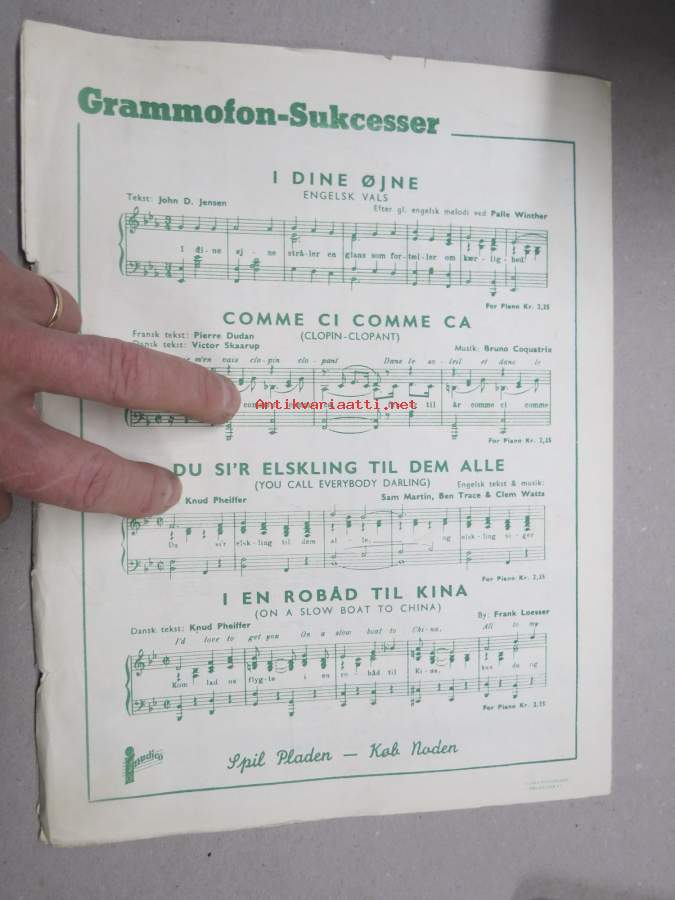 Grammofon-Sukcesser
I DINE ØJNE
ENGELSK VALS
Tekst: John D. Jensen
Efter gl. engelsk melodi ved Palle Winther
I di - ne øj - ne strå - ler en glans som for - tæl - ler om kær - lig - hed!
For Piano Kr. 2,25
COMME CI COMME CA
(CLOPIN-CLOPANT)
Fransk tekst: Pierre Dudan
Dansk tekst: Victor Skaarup
Musik: Bruno Coquatrix
m'en vais clo - pin clo - pant Dans le so - leil et dans le
Antikvariaatti.net
til År comme ci comme
For Piano Kr. 2,25
DU SI'R ELSKLING TIL DEM ALLE
(YOU CALL EVERYBODY DARLING)
Engelsk tekst & musik:
Knud Pheiffer
Sam Martin, Ben Trace & Clem Watts
Du si'r elsk - ling til dem al - le, og elsk - ling si - ger
For Piano Kr. 2,25
I EN ROBÅD TIL KINA
(ON A SLOW BOAT TO CHINA)
Dansk tekst: Knud Pheiffer
By: Frank Loesser
I'd love to get you On a slow boat to Chi - na, All to my
Kom lad os flyg - te i en ro - båd til Ki - na, kun du og
For Piano Kr. 2,25
imudico
Spil Pladen — Køb Noden